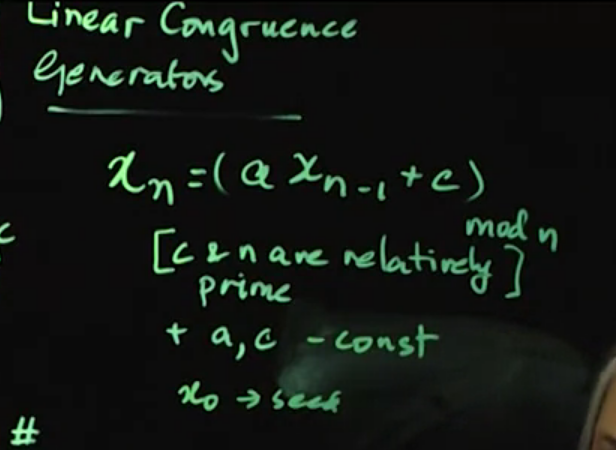 Linear Congruence
Generators
xₙ = (a xₙ₋₁ + c)
mod n
[c & n are relatively]
prime
+ a, c - const
x₀ → seed
#